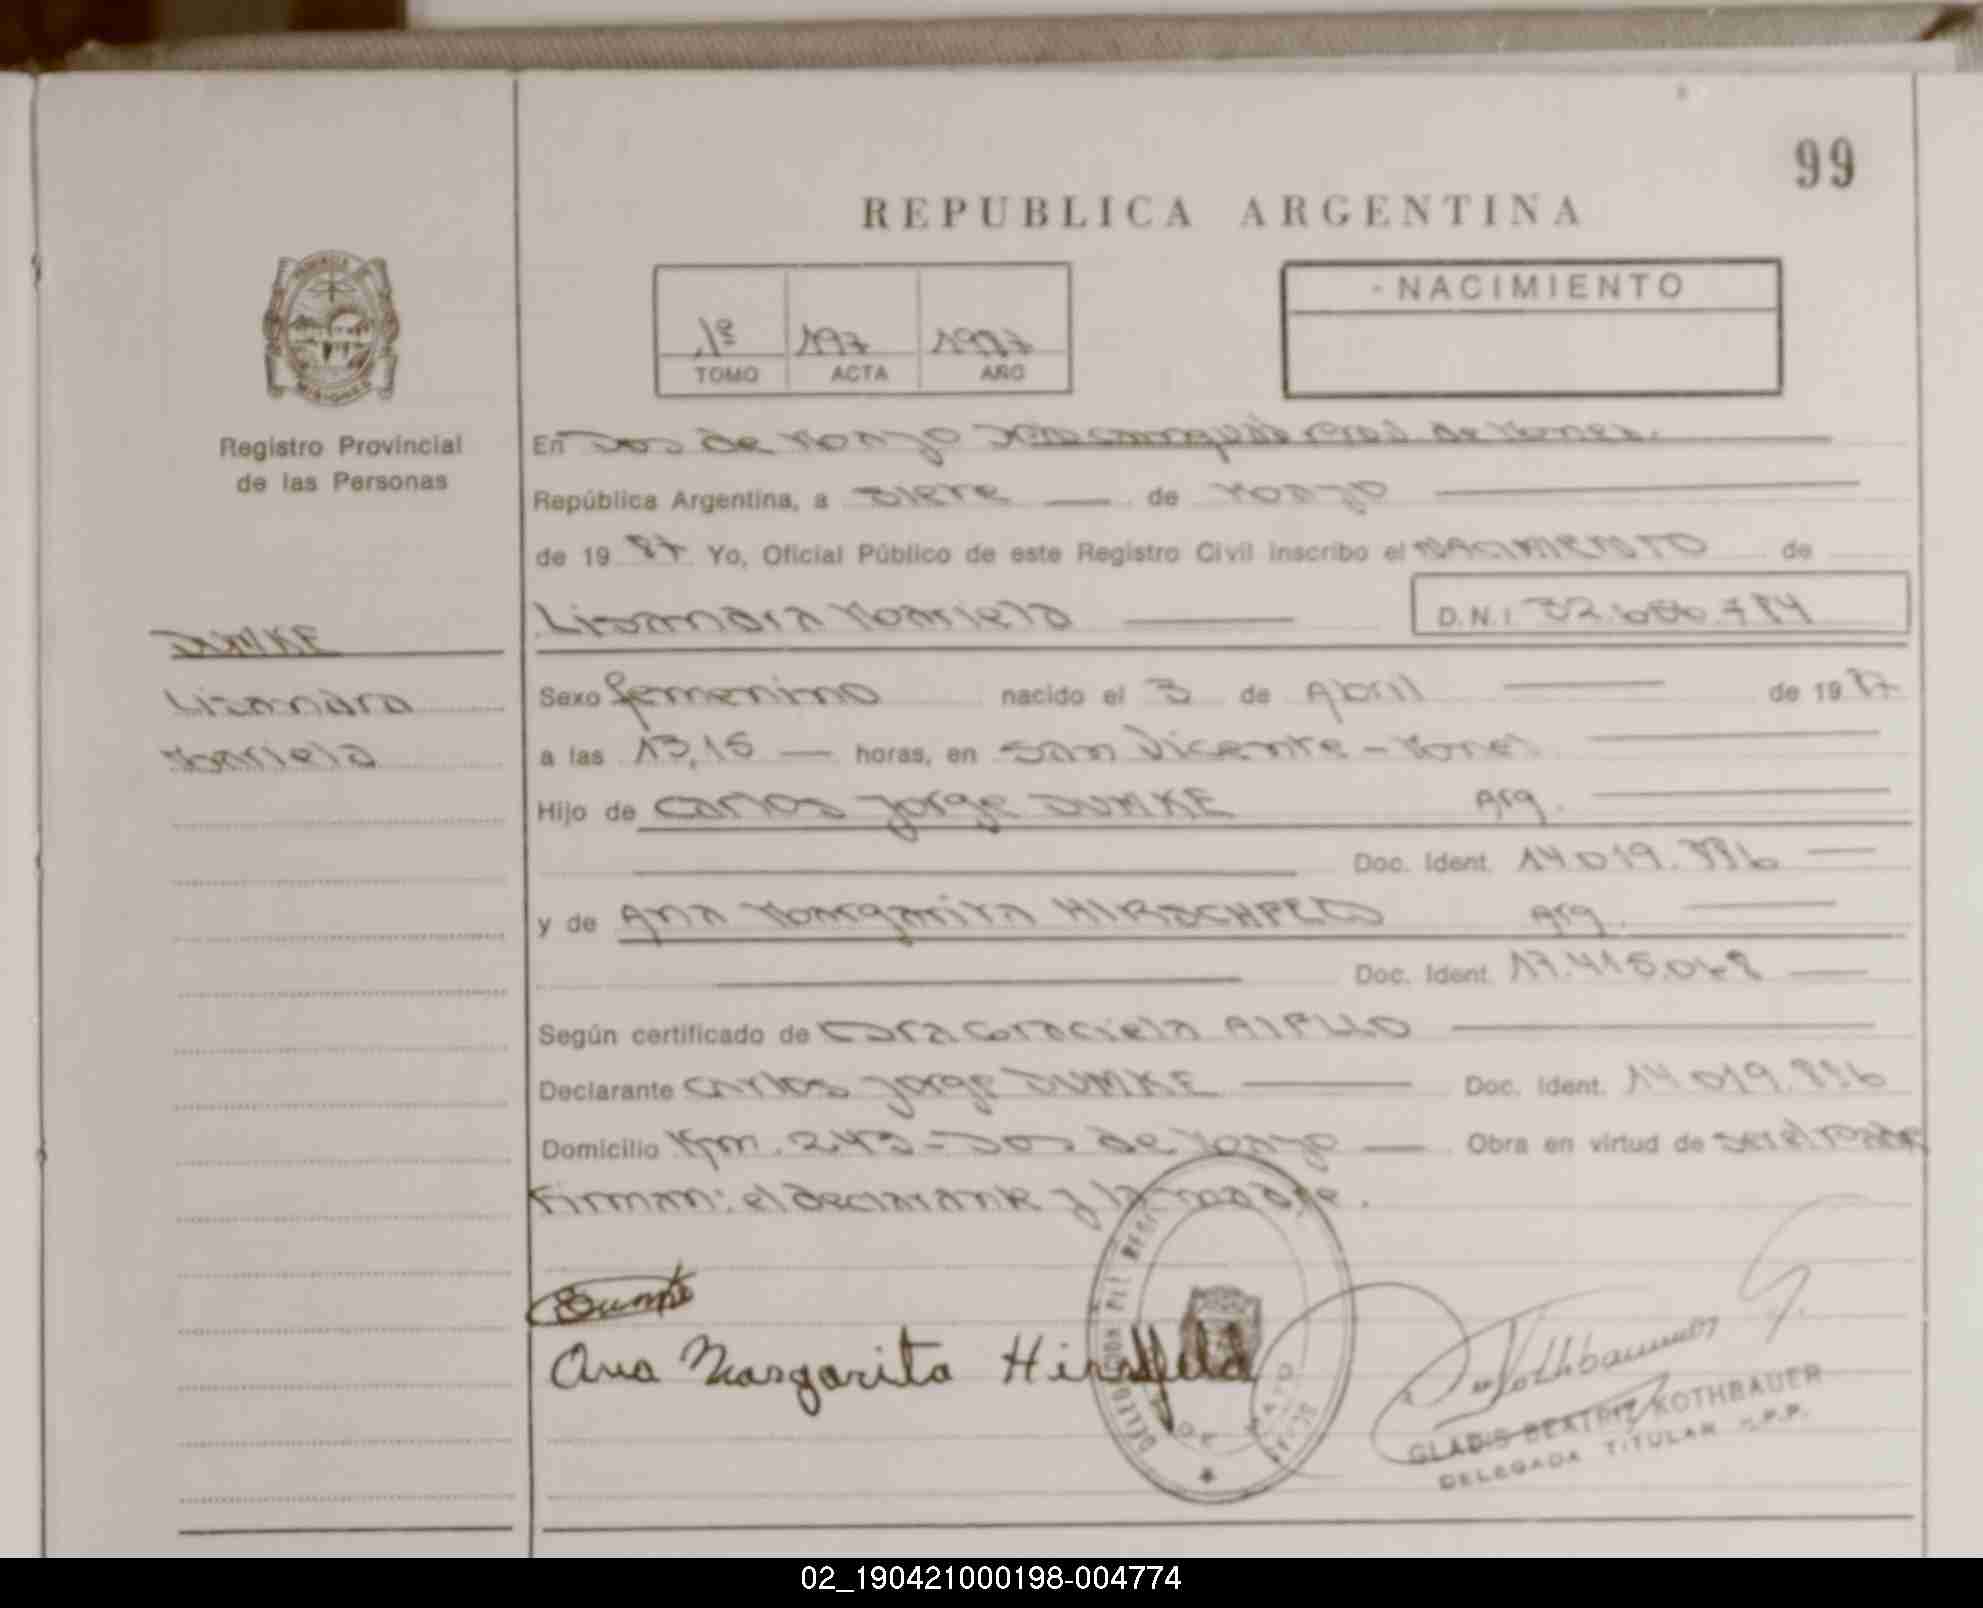 99
REPUBLICA ARGENTINA
- NACIMIENTO
1º 197 1987
TOMO ACTA AÑO
Registro Provincial
de las Personas
En Dos de Mayo de Mones.
República Argentina, a siete de Mayo
de 19 87 Yo, Oficial Público de este Registro Civil inscribo el NACIMIENTO de
Lisandra Mariela D.N.I 32.
DUMKE
Lisandra
Mariela
Sexo femenino nacido el 3 de Abril de 19 87
a las 13,15 horas, en San Vicente - Mnes.
Hijo de Carlos Jorge DUMKE Arg.
Doc. Ident. 14.019.
y de Ana Margarita HIRSCHFELD Arg.
Doc. Ident. 17.415.
Según certificado de
Declarante Carlos Jorge DUMKE Doc. Ident. 14.019.
Domicilio Km. 243 - Dos de Mayo Obra en virtud de ser el padre
Firman: el declarante y la madre.
Dumke
Ana Margarita Hirsfeld
DELEGACION DEL
DE MAYO
Rothbauer
GLADIS BEATRIZ ROTHBAUER
DELEGADA TITULAR R.P.P.
02_190421000198-004774